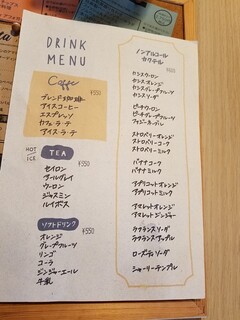 DRINK
MENU
Coffee
¥550
ブレンド珈琲
アイスコーヒー
エスプレッソ
カフェラテ
アイスラテ
HOT
ICE
TEA
¥550
セイロン
アールグレイ
ウーロン
ジャスミン
ルイボス
ソフトドリンク
¥550
オレンジ
グレープフルーツ
リンゴ
コーラ
ジンジャーエール
牛乳
ノンアルコール
カクテル
カシスウーロン
カシスオレンジ
カシスグレープフルーツ
カシスソーダ
ピーチウーロン
ピーチオレンジ
ピーチグレープフルーツ
ファジーネーブル
ストロベリーオレンジ
ストロベリーコーク
ストロベリーミルク
バナナコーク
バナナミルク
アプリコットオレンジ
アプリコットミルク
アマレットオレンジ
アマレットジンジャー
ソーダ
アップル
ソーダ
シャーリーテンプル